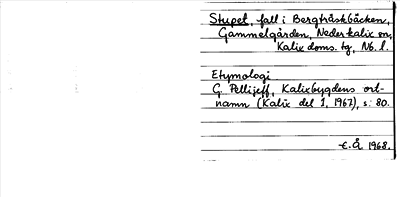 Stupet, fall i Bergträskbäcken,
Gammelgården, Nederkalix sn,
Kalix doms. tg, Nb. l.
Etymologi
G. Pellijeff, Kalixbygdens ort-
namn (Kalix del I, 1967), s: 80.
E. Å 1968.